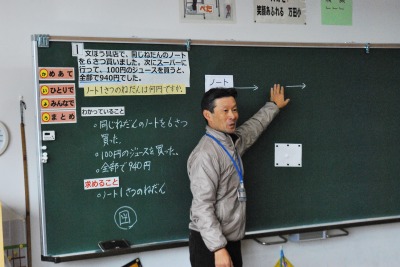 笑顔あふれる 万田小
1 文ぼう具店で、同じねだんのノート
を6さつ買いました。次にスーパーに
行って、100円のジュースを買うと、
全部で940円でした。
ノート1さつのねだんは何円ですか。
めあて
ひとりで
みんなで
まとめ
わかっていること
○同じねだんのノートを6さつ
買った。
○100円のジュースを買った。
○全部で940円
求めること
○ノート1さつのねだん
図
ノート